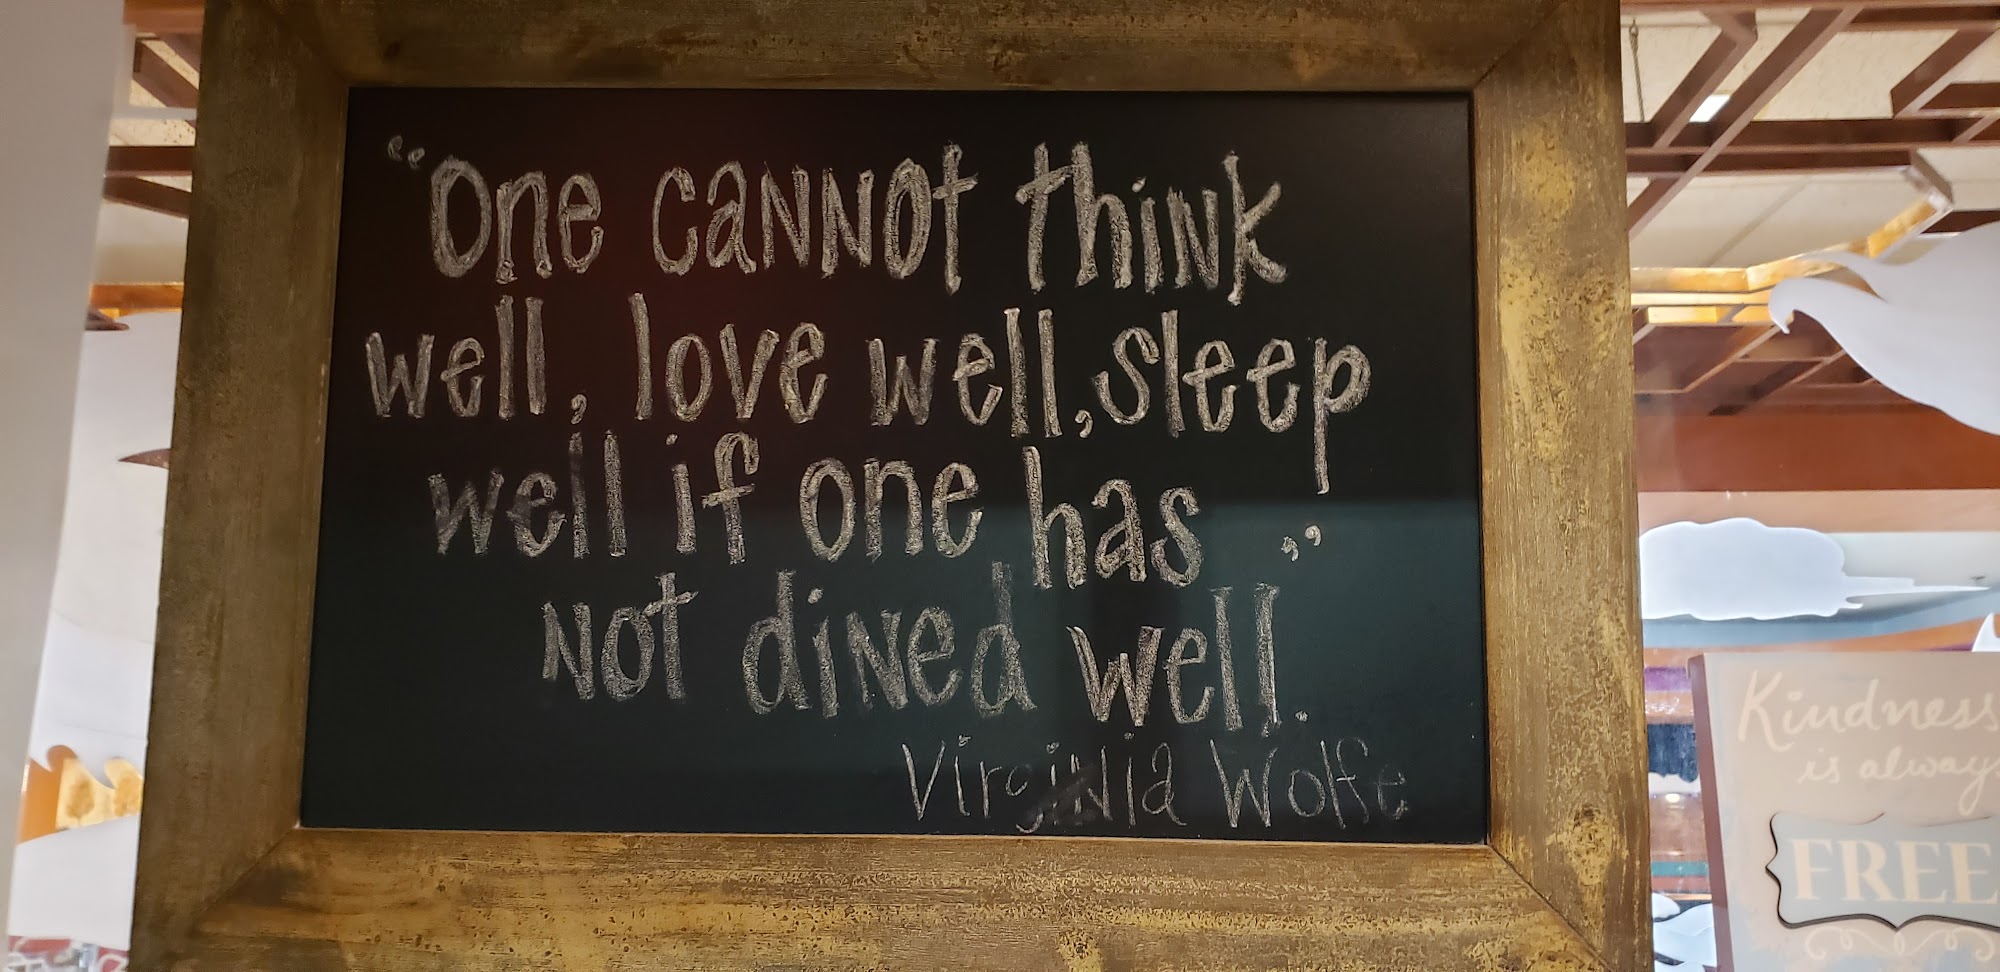 "One cannot think
well, love well, sleep
well if one has
not dined well."
Virginia Wolfe
Kindness
is always
FREE